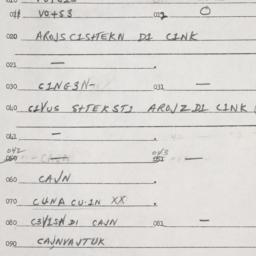 011 VO+S3 012 O
020 AROJSCISHTEKN DI CINK
021 —
030 CINGEN- 031 —
040 CIVUS SHTEKSTI AROJZ DI CINK
041 —
042 043 —
060 CAJN
070 CUNA CU-IN XX
080 DI CAJN 081 —
090 CAJNVAJTUK